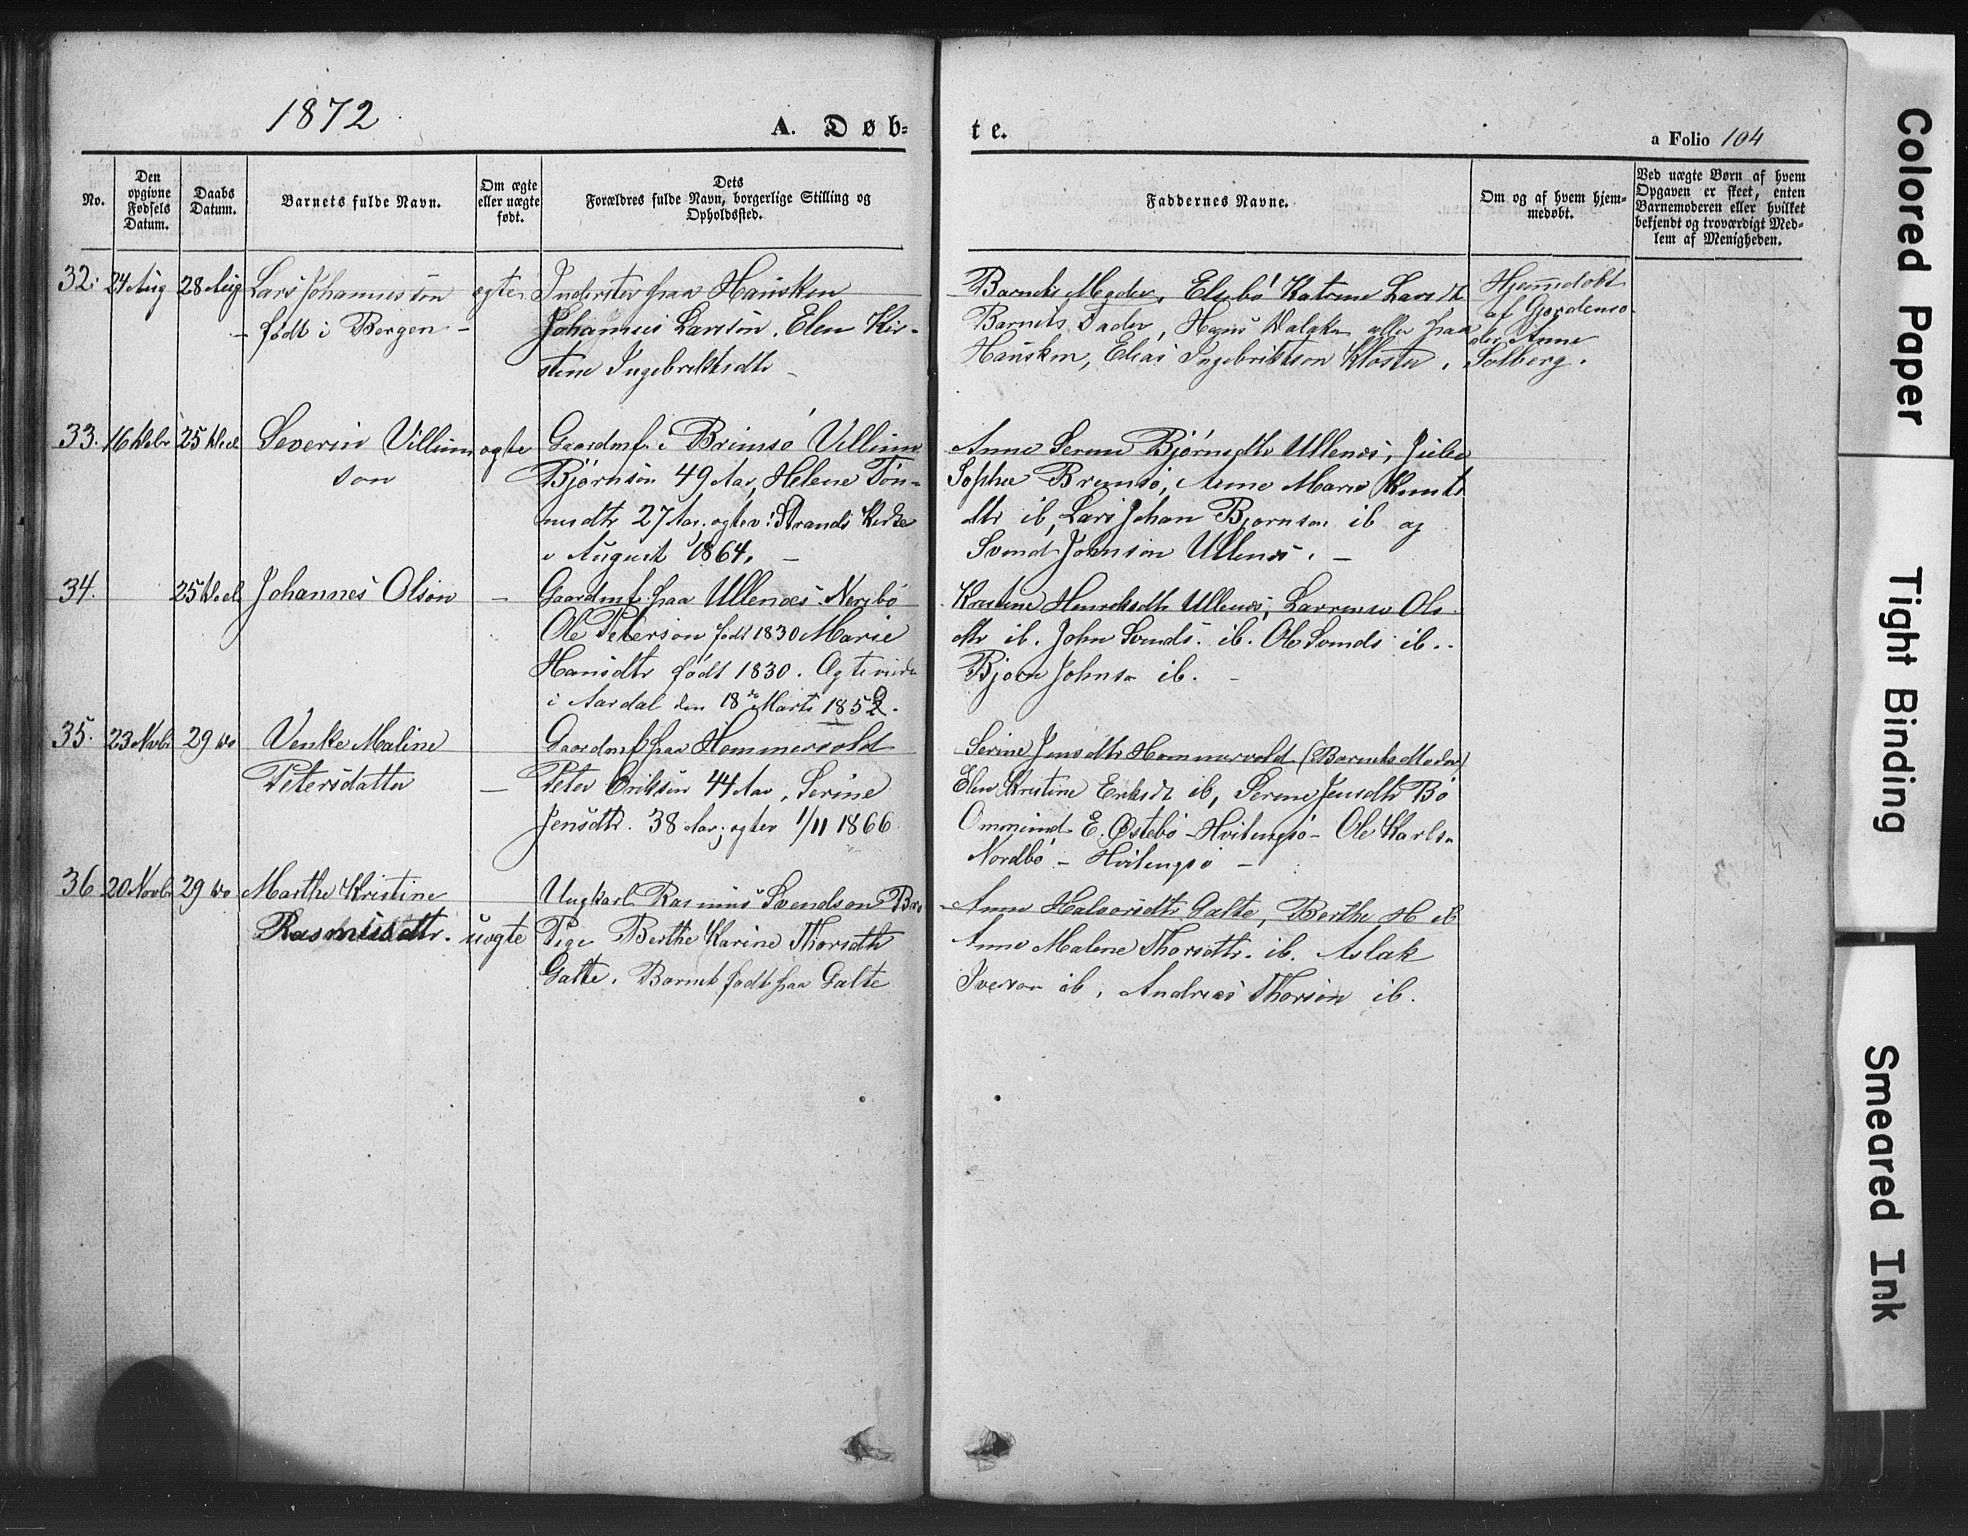 1872
A. Døb-
te.
a Folio 104
No.
Den opgivne Fødsels Datum.
Daabs Datum.
Barnets fulde Navn.
Om ægte eller uægte født.
Dets Forældres fulde Navn, borgerlige Stilling og Opholdssted.
Faddernes Navne.
Om og af hvem hjem-
medøbt.
Ved uægte Børn af hvem
Opgaven er skeet, enten
Barnemoderen eller hvilket
bekjendt og troværdigt Med-
lem af Menigheden.
32. 24 Aug 28 Aug Lars Johannesson ægte Inderster paa Hausken
- født i Bergen - Johannes Larsson, Elen Kir-
stine Ingebrektsdtr -
Barnets Moder, Elsebö Katrine Larsdt
Barnets Fader, Hans Valake alle paa
Hausken, Elias Ingebriktson Kloster.
Hjemdöbt
af Gjordemo-
der Anne
Solberg.
33. 16 Debr 25 Dec Severin Villum ægte Gaardmf. i Brimsö Villum
son Bjørnson 49 Aar, Helene Tön-
nesdtr 27 Aar, ægtev. i Strands Kirke
i August 1864. -
Anne Serine Bjørnsdtr Ullenes, Julie
Sophie Brimsö, Anne Marie Knuts
dtr ib, Lars Johan Bjornson ib og
Svend Johnson Ullenes. -
34. 25 Dec Johannes Olson - Gaardmf. paa Ullenæs Nerebö
Ole Peterson født 1830 Marie
Hansdtr født 1830. Ægteviede
i Aardal den 18de Marts 1852.
Kristine Henriksdtr Ullenes, Lavrense Ols-
dtr ib. John Svends. ib. Ole Svends ib.
Bjørn Johnson ib. -
35. 23 Novbr 29 Do Venke Maline Gaardmf paa Hommersold
Petersdatter - Peter Eriksön 44 Aar, Serine
Jensdtr. 38 Aar, ægtev 1/11 1866.
Serine Jensdtr Hommervold (Barnets Moder)
Elen Kristine Eriksdt ib, Serine Jensdtr Bö
Ommund E. Østebö - Hvitengsö - Ole Karls.
Nordbö - Hvitengsö -
36 20 Novbr 29 Do Marthe Kristine Ungkarl Rasmus Svendson
Rasmusdtr. uægte Pige Berthe Karine Thorsdtr
Galte. Barnet født paa Galte
Anne Halvorsdtr Galte, Berthe H ib
Anne Malene Thorsdtr. ib. Aslak
Iverson ib, Andreas Thorson ib.
Colored Paper
Tight Binding
Smeared Ink